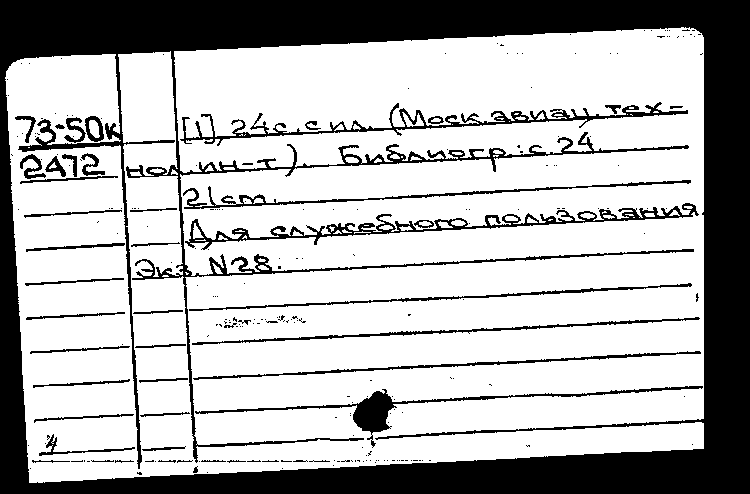 73-50к [1], 24с. с ил. (Моск. авиац. тех-
2472 нол. ин-т). Библиогр.: с. 24.
21cm.
Для служебного пользования.
Экз. N28.
4